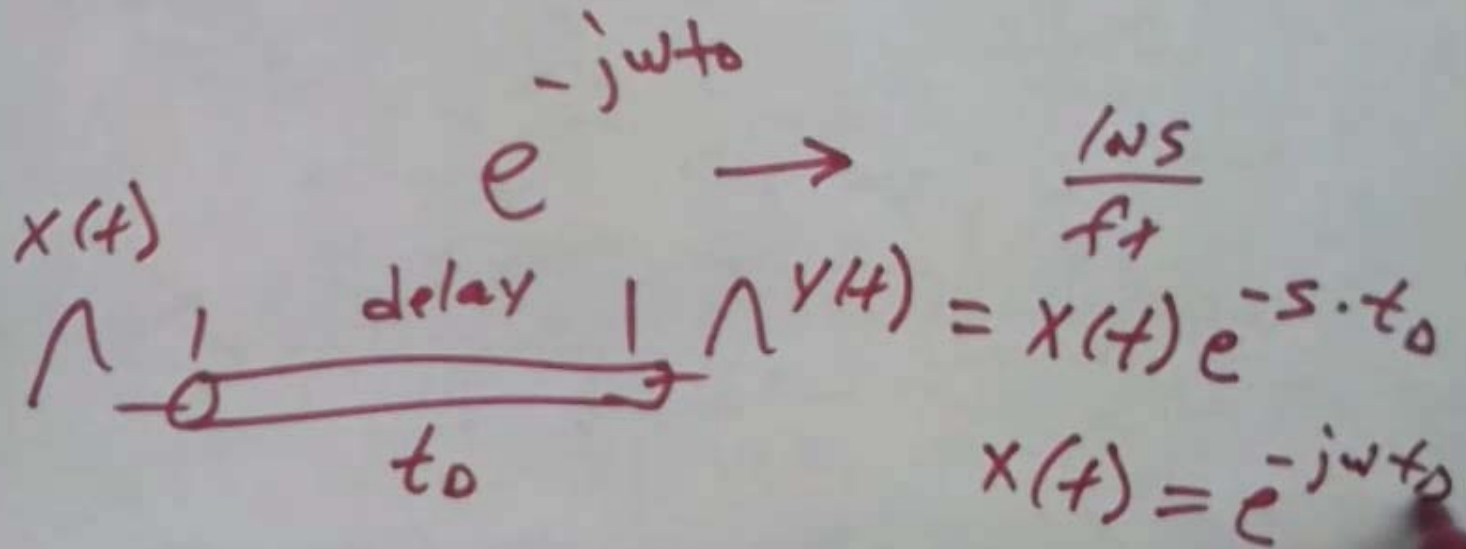 e^{-jωt_D} → 1NS/ft
x(t)
delay
y(t) = x(t) e^{-s·t_D}
t_D
x(t) = e^{-jωt_D}